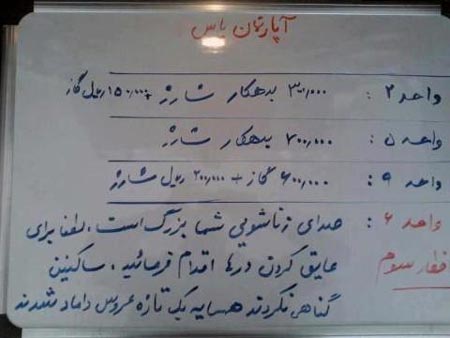 آپارتمان یاس
واحد ۲ : ۳۰۰٫۰۰۰ بدهکار شارژ + ۱۵۰٫۰۰۰ ریال گاز
واحد ۵ : ۷۰۰٫۰۰۰ بدهکار شارژ
واحد ۹ : ۶۰۰٫۰۰۰ گاز + ۲۰۰٫۰۰۰ ریال شارژ
واحد ۶ : صدای زناشویی شما بزرگ است. لطفا برای
اخطار سوم عایق کردن درها اقدام فرمائید. ساکنین
گناهی نکردند همسایه یک تازه عروس داماد شدند